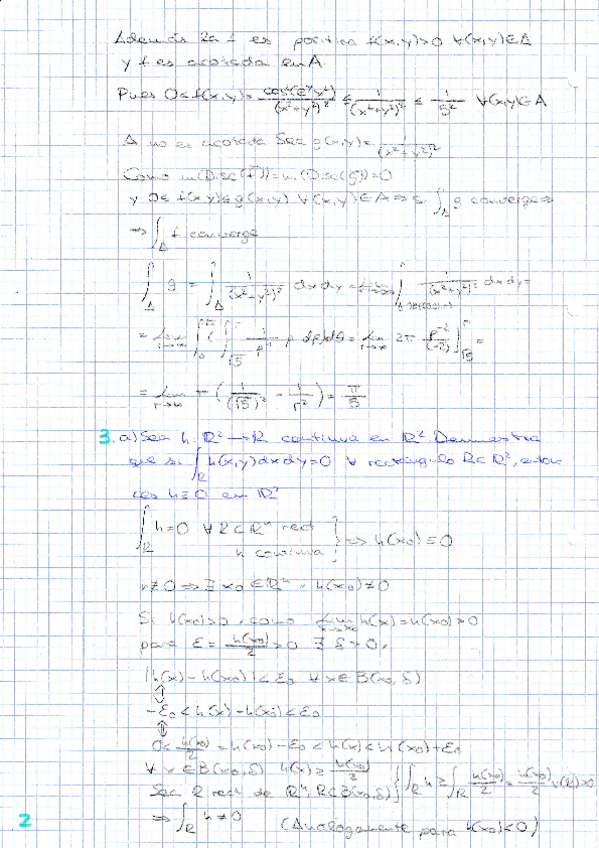 Además 2a f es positiva f(x,y)>0 ∀(x,y)∈A
y f es acotada en A.
Pues 0≤f(x,y)= cos²(e^x y²)/(x²+y²)² ≤ 1/(x²+y²)² ≤ 1/5² ∀(x,y)∈A
A no es acotada Sea g(x,y)= 1/(x²+y²)²
Como m(Disc(f))=m(Disc(g))=0
y 0≤f(x,y)≤g(x,y) ∀(x,y)∈A ⇒ si ∫_A g converge ⇒
⇒ ∫_A f converge
∫_A g = ∫_A 1/(x²+y²)² dxdy = lim ∫ 1/(x²+y²)² dxdy =
= lim_{r→∞} ∫_0^{2π} ( ∫_{√5}^r 1/ρ⁴ ρ dρ)dθ = lim_{r→∞} 2π ρ^{-2}/(-2) ]_{√5}^r =
= lim_{r→∞} π (1/(√5)² - 1/r²) = π/5
3. a) Sea h: R²→R continua en R². Demuestra
que si ∫_R h(x,y)dxdy=0 ∀ rectángulo R⊂R², enton-
ces h≡0 en R²
∫_R h=0 ∀R⊂R^n rect
h continua } ⇒ h(x0)=0
h≠0 ⇒ ∃ x0∈R^n, h(x0)≠0
Si h(x0)>0, como lim h(x)=h(x0)>0
para ε= h(x0)/2 >0 ∃ δ>0,
|h(x)-h(x0)|<ε0 ∀x∈B(x0,δ)
⇕
-ε0<h(x)-h(x0)<ε0
⇕
0< h(x0)/2 = h(x0)-ε0<h(x)<h(x0)+ε0
∀x∈B(x0,δ) h(x)≥ h(x0)/2
Sea R rect de R^n, R⊂B(x0,δ) } ∫_R h ≥ ∫_R h(x0)/2 = h(x0)/2 v(R)>0
⇒ ∫_R h≠0 (Análogamente para h(x0)<0)
2